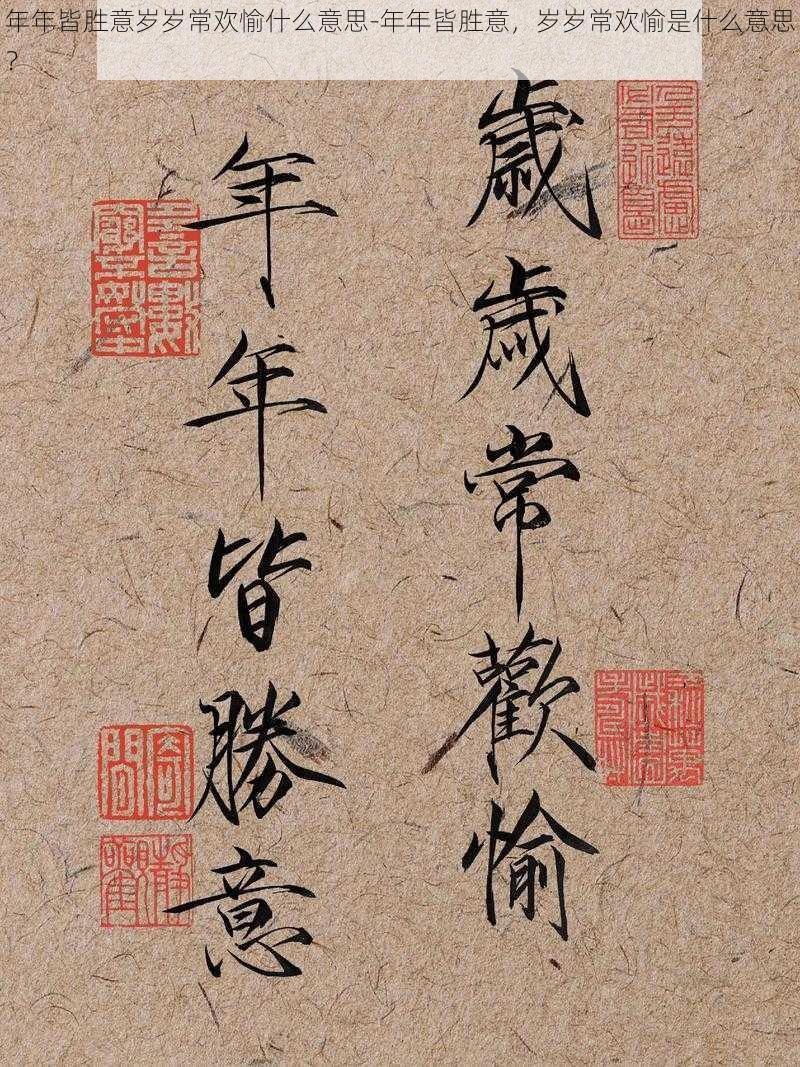 年年皆胜意岁岁常欢愉什么意思-年年皆胜意，岁岁常欢愉是什么意思
？
歲歲常歡愉
年年皆勝意